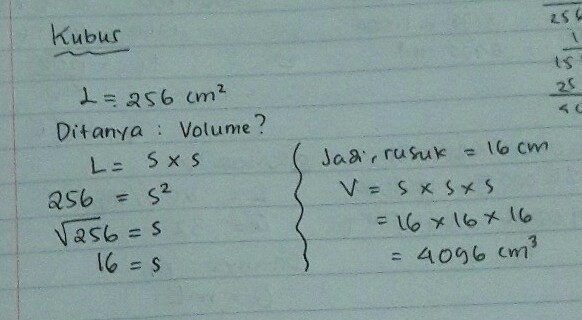 Kubus
L = 256 cm²
Ditanya : Volume?
L = s x s
256 = s²
√256 = s
16 = s
Jadi, rusuk = 16 cm
V = s x s x s
= 16 x 16 x 16
= 4096 cm³
256
1
15
25
40